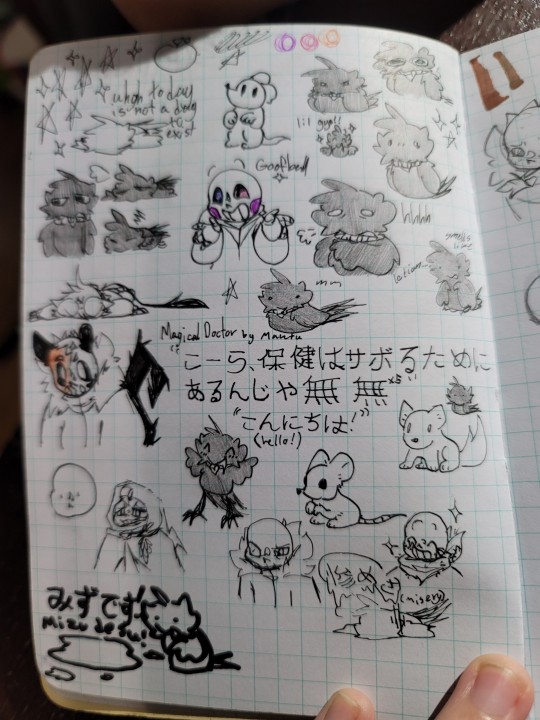 when today
is not a
to
exist
lil guy!!
Goofball
hhhh
mm
Magical Doctor by Maretu
"こーら、保健はサボるために
あるんじゃ無 無 x5"
"こんにちは!"
(hello!)
(misery)
みずです!
Mizu desu!